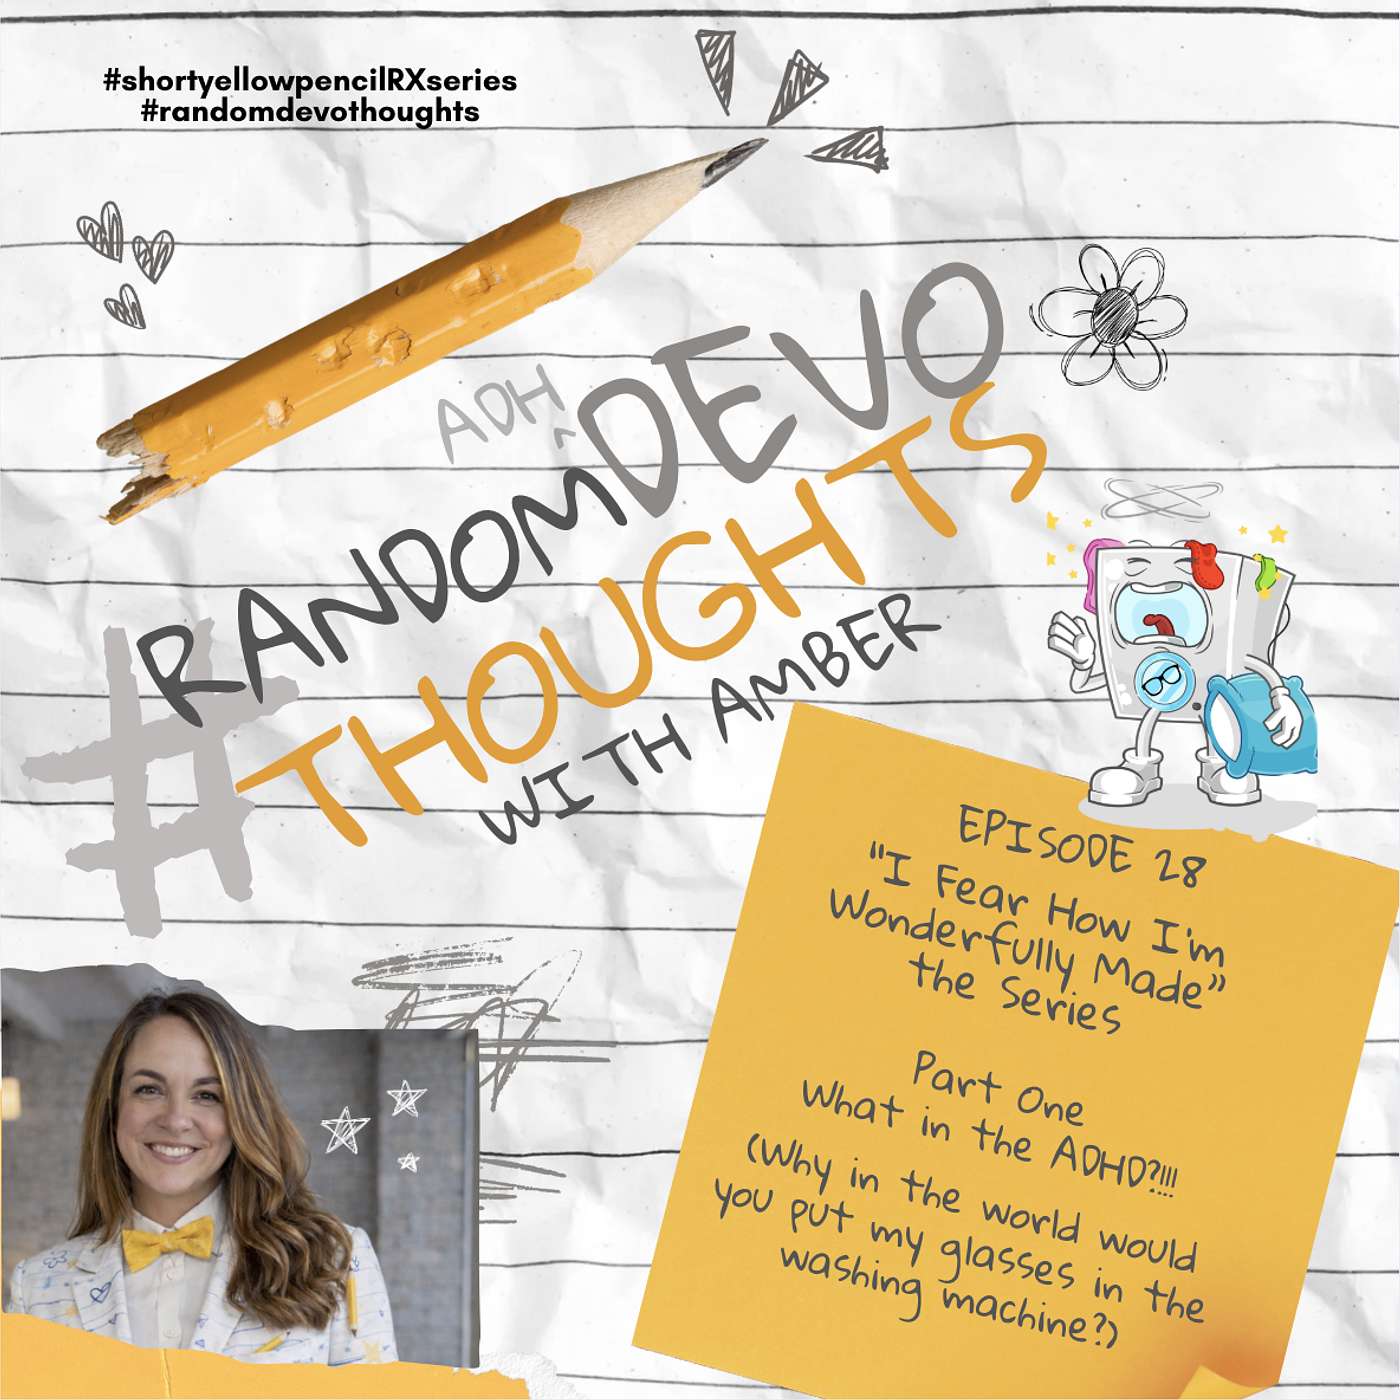 #shortyellowpencilRXseries
#randomdevothoughts
ADH
^
#RANDOMDEVO
THOUGHTS
WITH AMBER
EPISODE 28
"I Fear How I'm
Wonderfully Made"
the Series
Part One
What in the ADHD?!!!
(Why in the world would
you put my glasses in the
washing machine?)